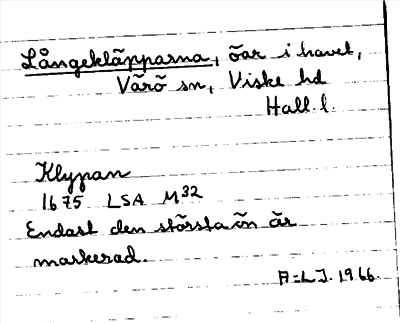 Långekläpparna, öar i havet,
Värö sn, Viske hd
Hall. l.
Klypan
1675 LSA M32
Endast den största ön är
markerad.
A=LJ. 1966.